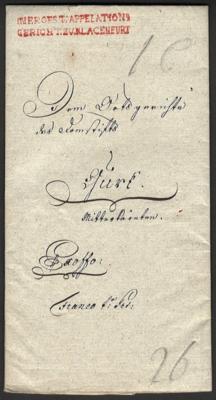 INEROEST. APPELATIONS
GERICHT. ZU KLAGENFURT
10
Dem Ortsgerichte
des Domstifts
Gurk.
Mittterkärnten.
Exoffo:
Franco
26